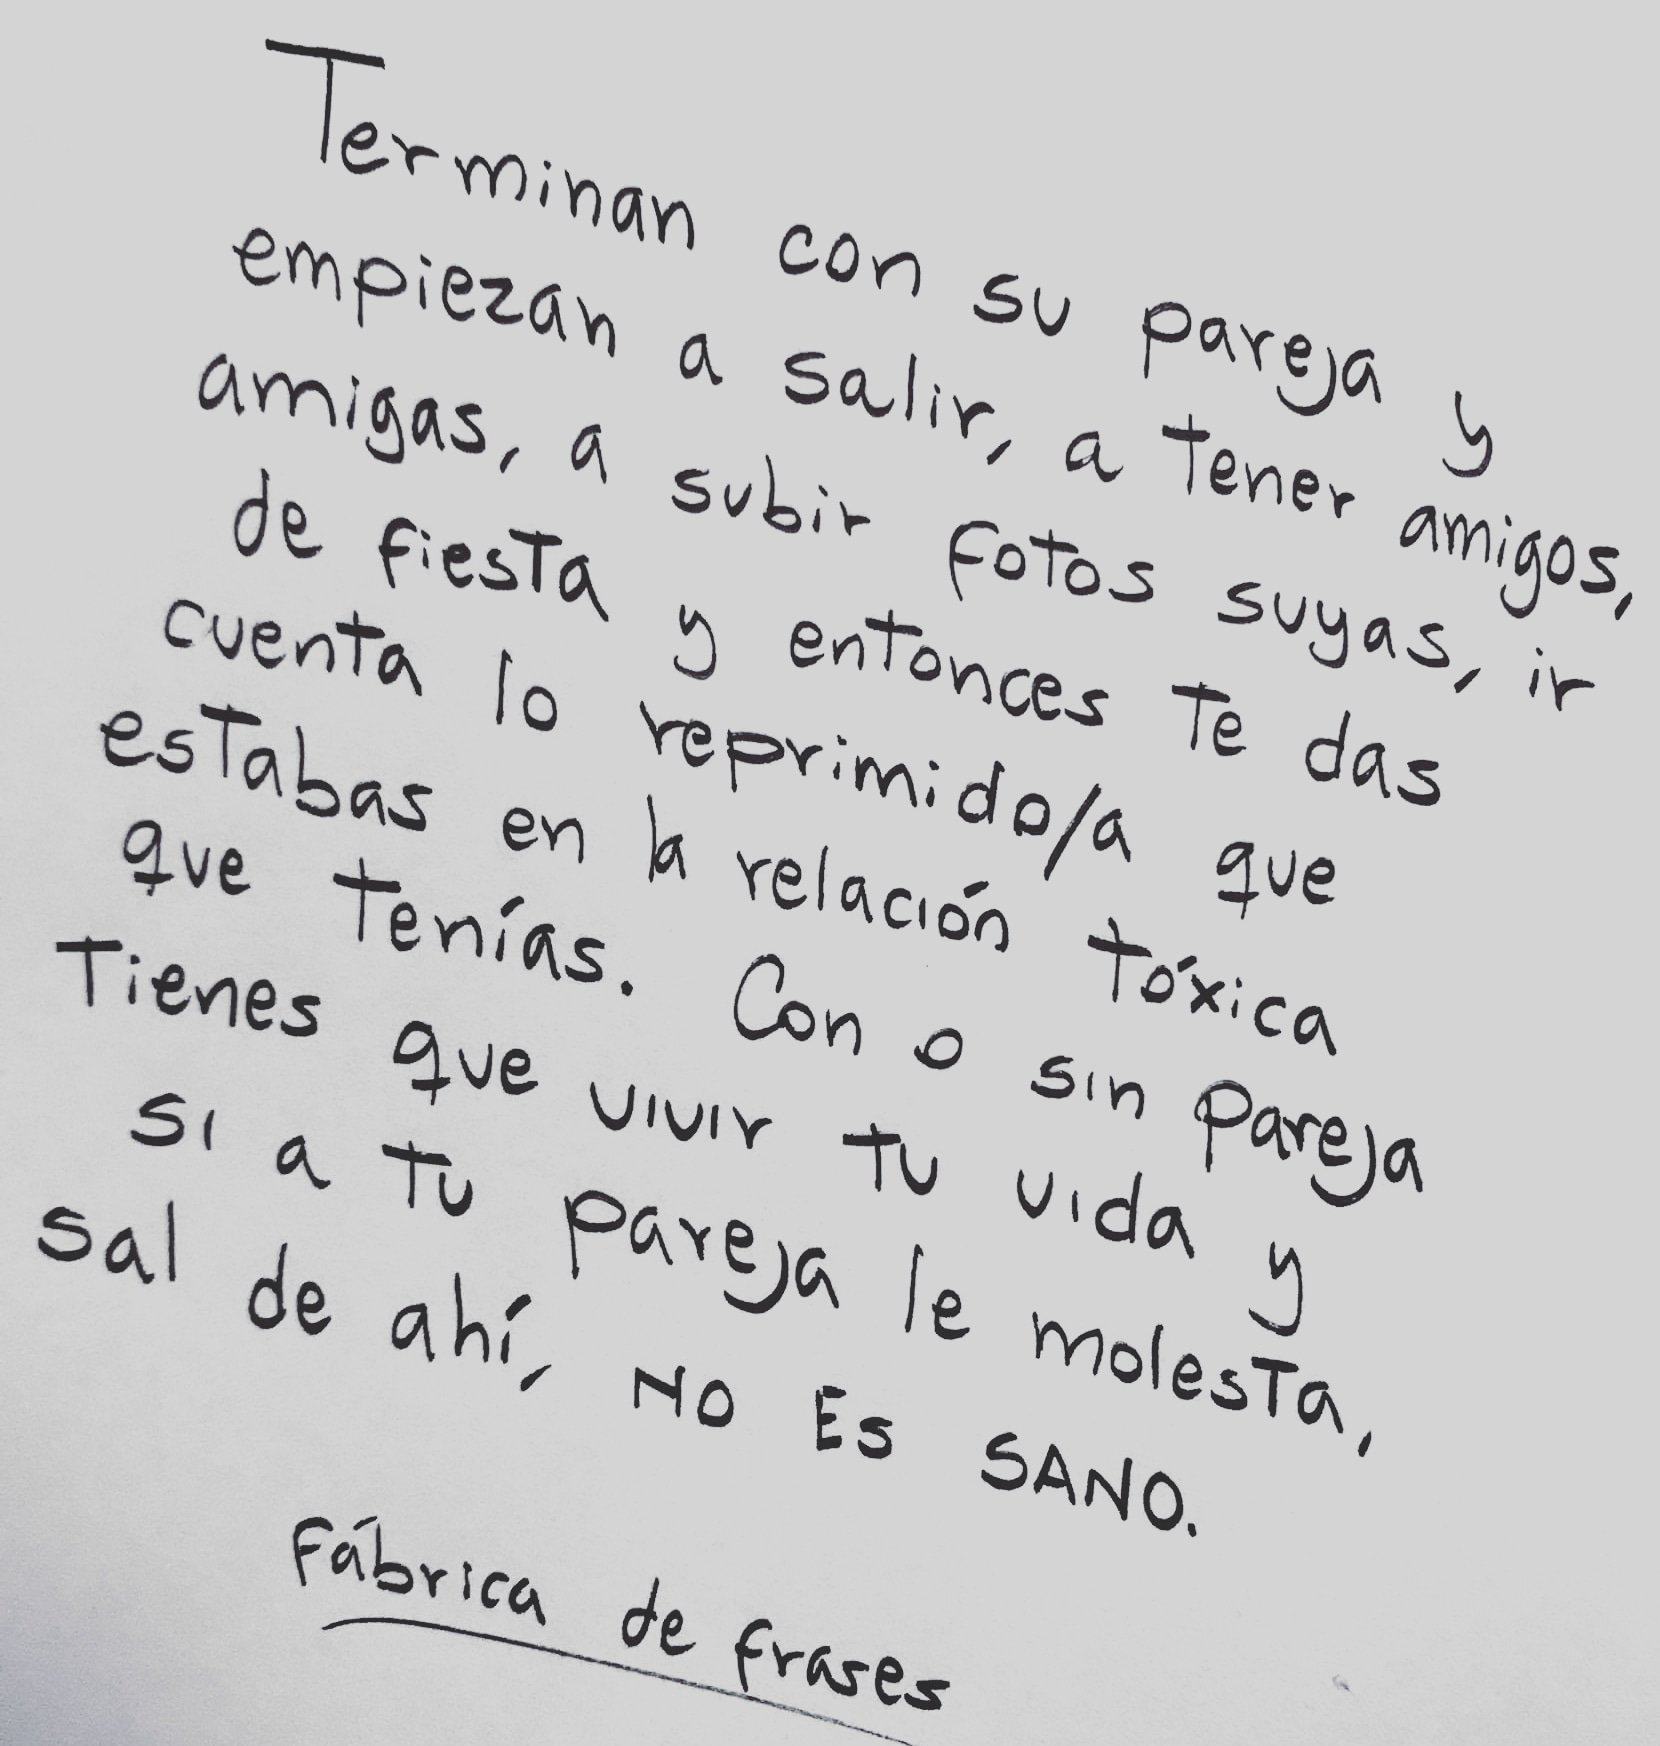 Terminan con su pareja y
empiezan a salir, a tener amigos,
amigas, a subir fotos suyas, ir
de fiesta y entonces te das
cuenta lo reprimido/a que
estabas en la relación tóxica
que tenías. Con o sin pareja
Tienes que vivir tu vida y
si a tu pareja le molesta,
sal de ahí, NO ES SANO.
Fábrica de frases